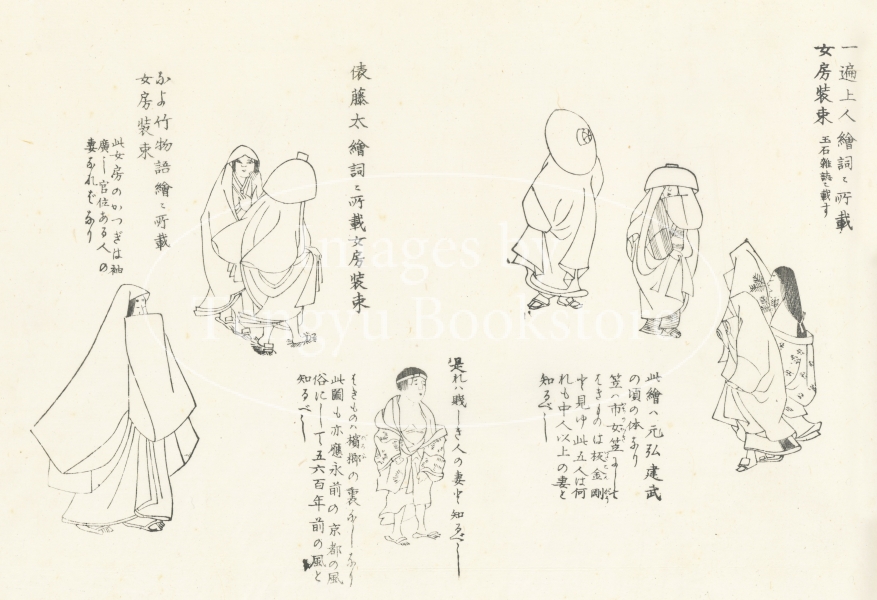 一遍上人繪詞ニ所載
女房装束 玉石雜誌ニ載す
此繪ハ元弘建武
の頃の体なり
笠ハ市女笠にして
はきものは板金剛
と見ゆ此五人は何
れも中人以上の妻と
知るべし
是れハ賤しき人の妻と知るべし
俵藤太繪詞ニ所載女房装束
はきものハ檳榔の裏なしなり
此圖も亦應永前の京都の風
俗にして五六百年前の風と
知るべし
なよ竹物語繪ニ所載
女房装束
此女房のかつぎは袖
廣し官位ある人の
妻なればなり
Images by
Tengyu Bookstore